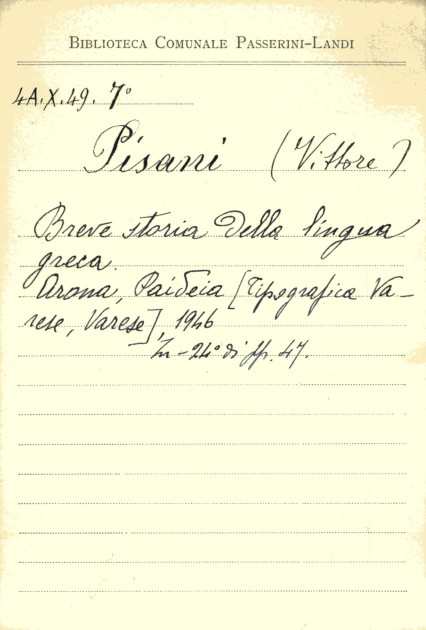 BIBLIOTECA COMUNALE PASSERINI-LANDI
4A.X.49. 7°
Pisani (Vittore)
Breve storia della lingua
greca.
Arona, Paideia [Tipografica Va-
rese, Varese], 1946
In-24° di pp. 47.